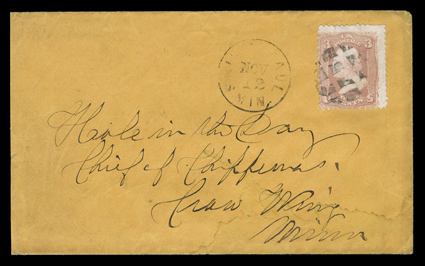 ST. PAUL
NOV
12
MIN
3 3
Hole in the Day
Chief of Chippewas.
Crow Wing
Minn